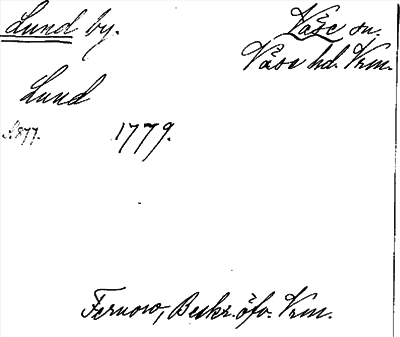 Lund by. Väse sn.
Väse hd. Vrm.
Lund
S. 877. 1779.
Fernow, Beskr. öfv. Vrm.